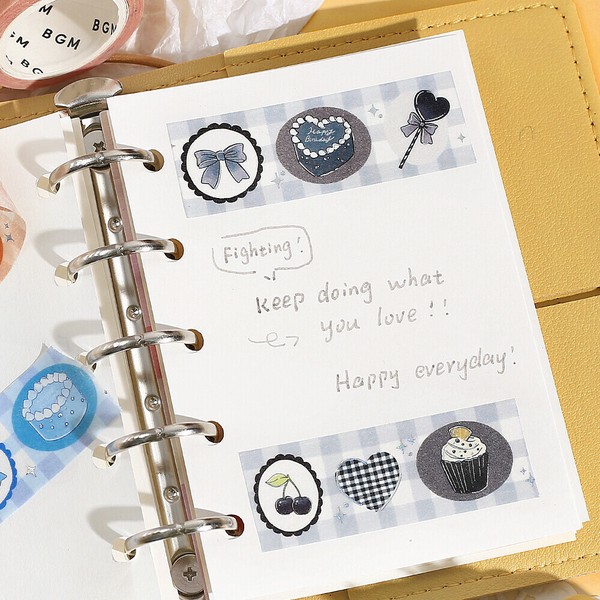 M
BGM
BGM
BG
Happy
Fighting!
Keep doing what
you love!!
Happy everyday!